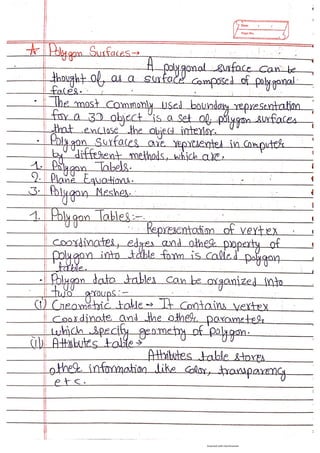 Date
Page No.
* Polygon Surfaces →
A polygonal surface can be
thought of as a surface composed of polygonal
faces.
• The most commonly used boundary representation
for a 3D object is a set of polygon surfaces
that enclose the object interior.
• Polygon surfaces are represented in computer
by different methods, which are.
1. Polygon Tabels.
2. Plane Equations.
3. Polygon Meshes.
1. Polygon Tables:-
Representation of vertex
coordinates, edges and other property of
polygon into table form is called polygon
table.
• Polygon data tables can be organized into
two groups:-
(i) Greometric table → It contains vertex
coordinate and the other parameter
which specify geometry of polygon.
(ii) Attributes table →
Attributes table stores
other information like color, transparency
etc.